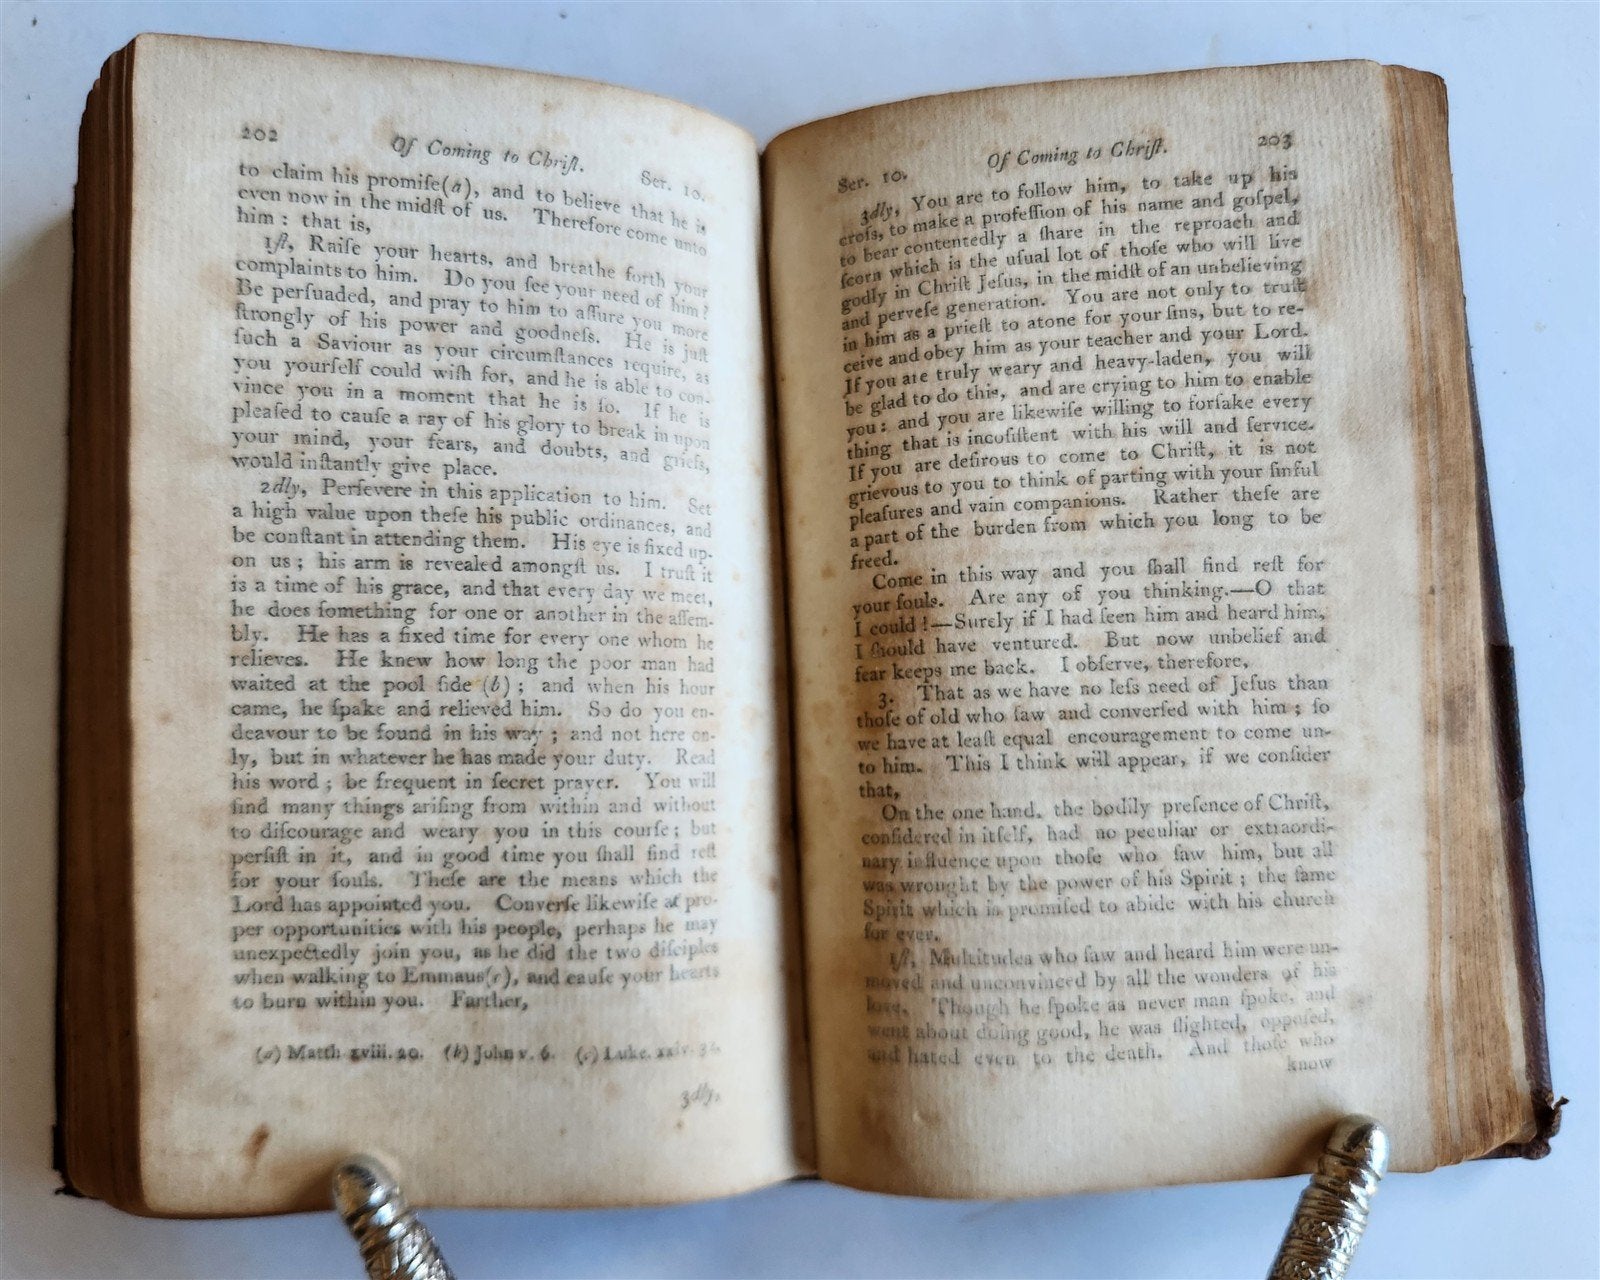 202 Of Coming to Chriſt. Ser. 10.
to claim his promiſe(a), and to believe that he is
even now in the midſt of us. Therefore come unto
him: that is,
1ſt, Raiſe your hearts, and breathe forth your
complaints to him. Do you ſee your need of him?
Be perſuaded, and pray to him to aſſure you more
ſtrongly of his power and goodneſs. He is juſt
ſuch a Saviour as your circumſtances require, as
you yourſelf could wiſh for, and he is able to con-
vince you in a moment that he is ſo. If he is
pleaſed to cauſe a ray of his glory to break in upon
your mind, your fears, and doubts, and griefs,
would inſtantly give place.
2dly, Perſevere in this application to him. Set
a high value upon theſe his public ordinances, and
be conſtant in attending them. His eye is fixed up-
on us; his arm is revealed amongſt us. I truſt it
is a time of his grace, and that every day we meet,
he does ſomething for one or another in the aſſem-
bly. He has a fixed time for every one whom he
relieves. He knew how long the poor man had
waited at the pool ſide (b); and when his hour
came, he ſpake and relieved him. So do you en-
deavour to be found in his way; and not here on-
ly, but in whatever he has made your duty. Read
his word; be frequent in ſecret prayer. You will
find many things ariſing from within and without
to diſcourage and weary you in this courſe; but
perſiſt in it, and in good time you ſhall find reſt
for your ſouls. Theſe are the means which the
Lord has appointed you. Converſe likewiſe at pro-
per opportunities with his people, perhaps he may
unexpectedly join you, as he did the two diſciples
when walking to Emmaus(c), and cauſe your hearts
to burn within you. Farther,
(a) Matth xviii. 20. (b) John v. 6. (c) Luke. xxiv. 32.
3dly,
Ser. 10. Of Coming to Chriſt. 203
3dly, You are to follow him, to take up his
croſs, to make a profeſſion of his name and goſpel,
to bear contentedly a ſhare in the reproach and
ſcorn which is the uſual lot of thoſe who will live
godly in Chriſt Jeſus, in the midſt of an unbelieving
and perveſe generation. You are not only to truſt
in him as a prieſt to atone for your ſins, but to re-
ceive and obey him as your teacher and your Lord.
If you are truly weary and heavy-laden, you will
be glad to do this, and are crying to him to enable
you: and you are likewiſe willing to forſake every
thing that is incoſiſtent with his will and ſervice.
If you are deſirous to come to Chriſt, it is not
grievous to you to think of parting with your ſinful
pleaſures and vain companions. Rather theſe are
a part of the burden from which you long to be
freed.
Come in this way and you ſhall find reſt for
your ſouls. Are any of you thinking.—O that
I could!—Surely if I had ſeen him and heard him,
I ſhould have ventured. But now unbelief and
fear keeps me back. I obſerve, therefore,
3. That as we have no leſs need of Jeſus than
thoſe of old who ſaw and converſed with him; ſo
we have at leaſt equal encouragement to come un-
to him. This I think will appear, if we conſider
that,
On the one hand, the bodily preſence of Chriſt,
conſidered in itſelf, had no peculiar or extraordi-
nary influence upon thoſe who ſaw him, but all
was wrought by the power of his Spirit; the ſame
Spirit which is promiſed to abide with his church
for ever.
1ſt, Multitudes who ſaw and heard him were un-
moved and unconvinced by all the wonders of his
love. Though he ſpoke as never man ſpoke, and
went about doing good, he was ſlighted, oppoſed,
and hated even to the death. And thoſe who
know